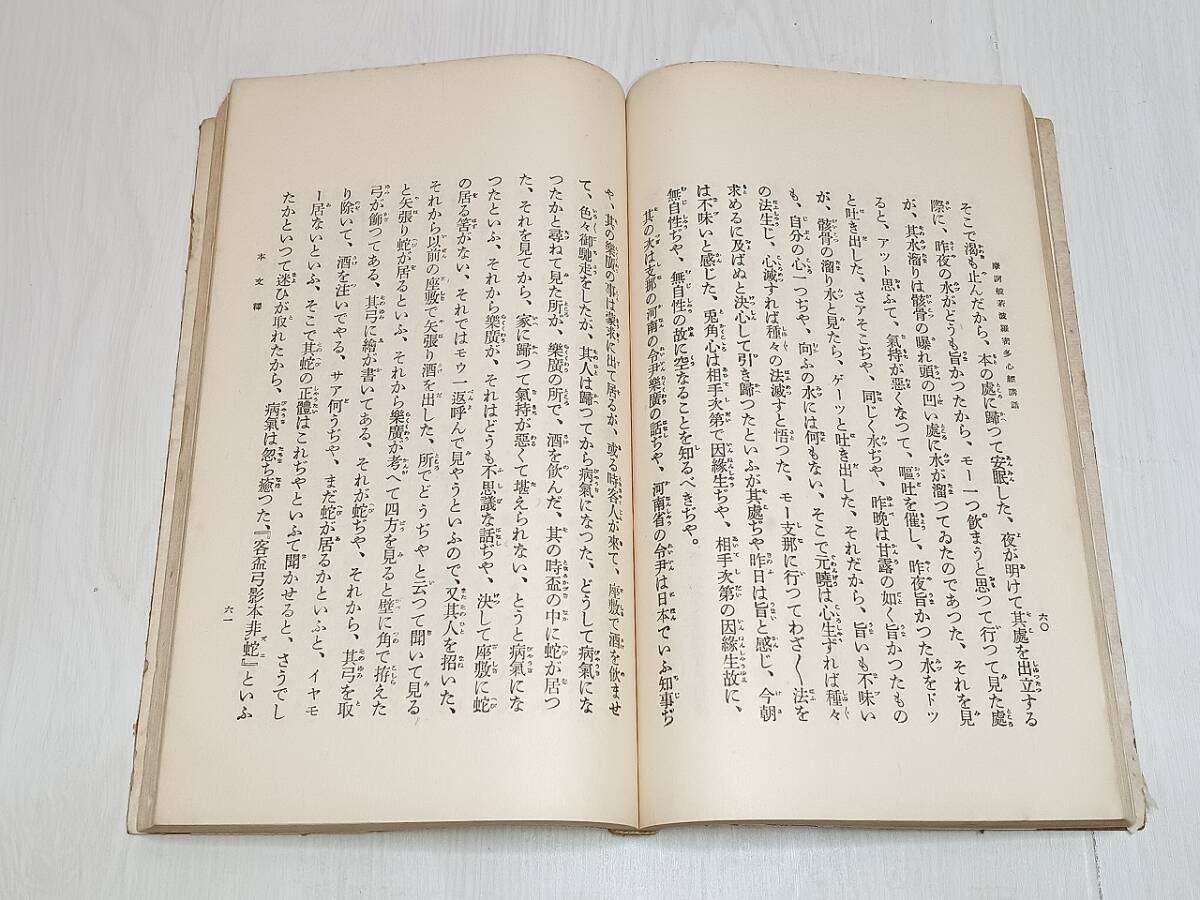 摩訶般若波羅密多心經講話
六〇
そこで渇も止んだから、本の處に歸つて安眠した、夜が明けて其處を出立する
際に、昨夜の水がどうも旨かつたから、モー一つ飲まうと思つて行つて見た處
が、其水溜りは骸骨の曝れ頭の凹い處に水が溜つてゐたのであつた、それを見
ると、アット思ふて、氣持が惡くなつて、嘔吐を催し、昨夜旨かつた水をドッ
と吐き出した、さアそこぢや、同じく水ぢや、昨晩は甘露の如く旨かつたもの
が、骸骨の溜り水と見たら、ゲーッと吐き出した、それだから、旨いも不味い
も、自分の心一つぢや、向ふの水には何もない、そこで元曉は心生ずれば種々
の法生じ、心滅すれば種々の法滅すと悟つた、モー支那に行つてわざ〳〵法を
求めるに及ばぬと決心して引き歸つたといふが其處ぢや昨日は旨と感じ、今朝
は不味いと感じた、兎角心は相手次第で因緣生ぢや、相手次第の因緣生故に、
無自性ぢや、無自性の故に空なることを知るべきぢや。
其の次は支那の河南の令尹樂廣の話ぢや、河南省の令尹は日本でいふ知事ぢ
や、其の樂廣の事は蒙求に出て居るが、或る時客人が來て、座敷で酒を飲ませ
て、色々御馳走をしたが、其人は歸つてから病氣になつた、どうして病氣にな
つたかと尋ねて見た所が、樂廣の所で、酒を飲んだ、其の時盃の中に蛇が居つ
た、それを見てから、家に歸つて氣持が惡くて堪えられない、とうと病氣にな
つたといふ、それから樂廣が、それはどうも不思議な話ぢや、決して座敷に蛇
の居る筈がない、それではモウ一返呼んで見やうといふので、又其人を招いた、
それから以前の座敷で矢張り酒を出した、所でどうぢやと云つて聞いて見る
と矢張り蛇が居るといふ、それから樂廣が考へて四方を見ると壁に角で拵えた
弓が飾つてある、其弓に繪が書いてある、それが蛇ぢや、それから、其弓を取
り除いて、酒を注いでやる、サア何うぢや、まだ蛇が居るかといふと、イヤモ
ー居ないといふ、そこで其蛇の正體はこれぢやといふて聞かせると、さうでし
たかといつて迷ひが取れたから、病氣は忽ち癒つた、『客盃弓影本非蛇』といふ
本文釋
六一